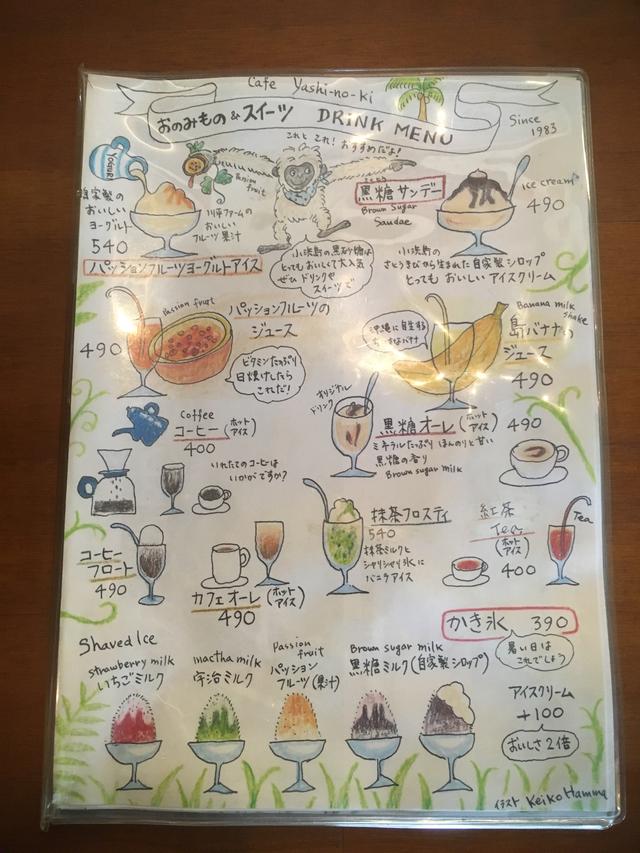 Cafe Yashi-no-ki
おのみもの&スイーツ DRINK MENU
Since
1983
これと これ! おすすめだよ!
YOGURT
Passion
fruit
自家製の
おいしい
ヨーグルト
540
川平ファームの
おいしい
フルーツ果汁
パッションフルーツヨーグルトアイス
黒糖サンデー
Brown Sugar
Sundae
Ice cream
490
小浜島の黒砂糖は
とっても おいしくて大人気
ぜひ ドリンクや
スイーツで
小浜島の
さとうきびから生まれた 自家製シロップ
とっても おいしい アイスクリーム
Passion fruit
パッションフルーツの
ジュース
490
ビタミンたっぷり
日焼けしたら
これだ!
Banana milk
shake
島バナナの
ジュース
490
沖縄に自生する
バナナ
Coffee
コーヒー(ホット
アイス)
400
いれたてのコーヒーは
いかがですか?
オリジナル
ドリンク
黒糖オーレ(ホット
アイス) 490
ミネラルたっぷり ほんのりと甘い
黒糖の香り
Brown sugar milk
コーヒー
フロート
490
カフェオーレ(ホット
アイス)
490
抹茶フロスティ
540
抹茶ミルクと
シャリシャリ氷に
バニラアイス
紅茶
Tea
(ホット
アイス)
400
Tea
かき氷 390
暑い日は
これでしょう
Shaved Ice
strawberry milk
いちごミルク
mactha milk
宇治ミルク
Passion
fruit
パッション
フルーツ(果汁)
Brown sugar milk
黒糖ミルク(自家製シロップ)
アイスクリーム
+100
おいしさ2倍
イラスト Keiko Hamma